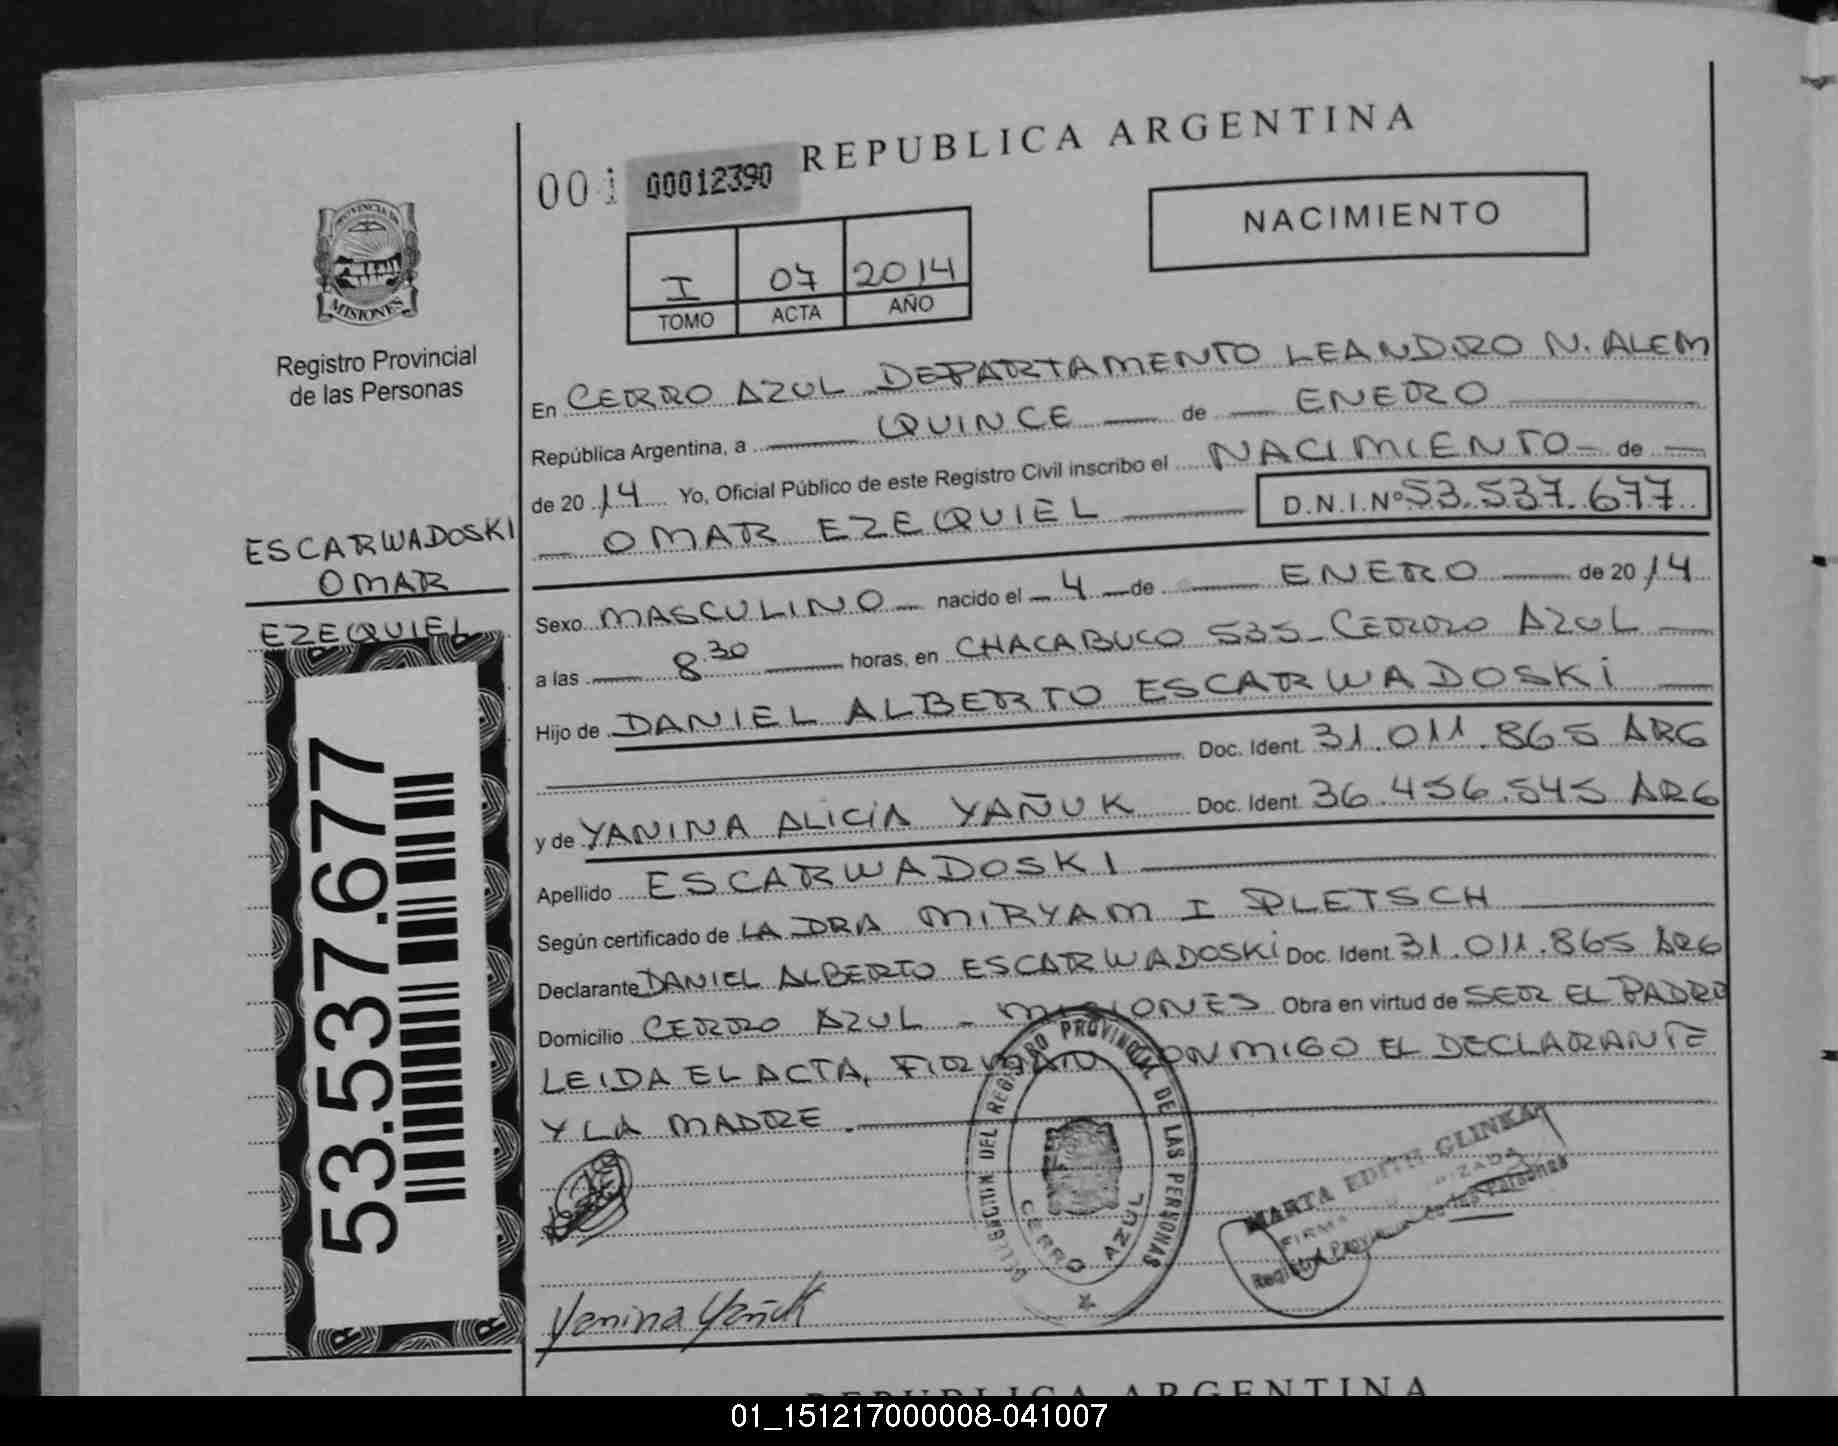 REPUBLICA ARGENTINA
001 00012390
NACIMIENTO
I 07 2014
TOMO ACTA AÑO
PROVINCIA DE
MISIONES
Registro Provincial
de las Personas
ESCARWADOSKI
OMAR
EZEQUIEL
53.537.677
En CERRO AZUL DEPARTAMENTO LEANDRO N. ALEM
República Argentina, a QUINCE de ENERO
de 2014 Yo, Oficial Público de este Registro Civil inscribo el NACIMIENTO de
OMAR EZEQUIEL D.N.I.Nº 53.537.677
Sexo MASCULINO nacido el 4 de ENERO de 2014
a las 8.30 horas, en CHACABUCO 535 - CERRO AZUL
Hijo de DANIEL ALBERTO ESCARWADOSKI
Doc. Ident. 31.011.865 ARG
y de YANINA ALICIA YAÑUK Doc. Ident. 36.456.545 ARG
Apellido ESCARWADOSKI
Según certificado de LA DRA MIRYAM I PLETSCH
Declarante DANIEL ALBERTO ESCARWADOSKI Doc. Ident. 31.011.865 ARG
Domicilio CERRO AZUL - MISIONES Obra en virtud de SER EL PADRE
LEIDA EL ACTA, FIRMAN CONMIGO EL DECLARANTE
Y LA MADRE.
DELEGACION DEL REGISTRO PROVINCIAL DE LAS PERSONAS
CERRO AZUL
MARTA EDITH GLINKA
Registro Provincial de las Personas
Yanina Yañuk
REPUBLICA ARGENTINA
01_151217000008-041007